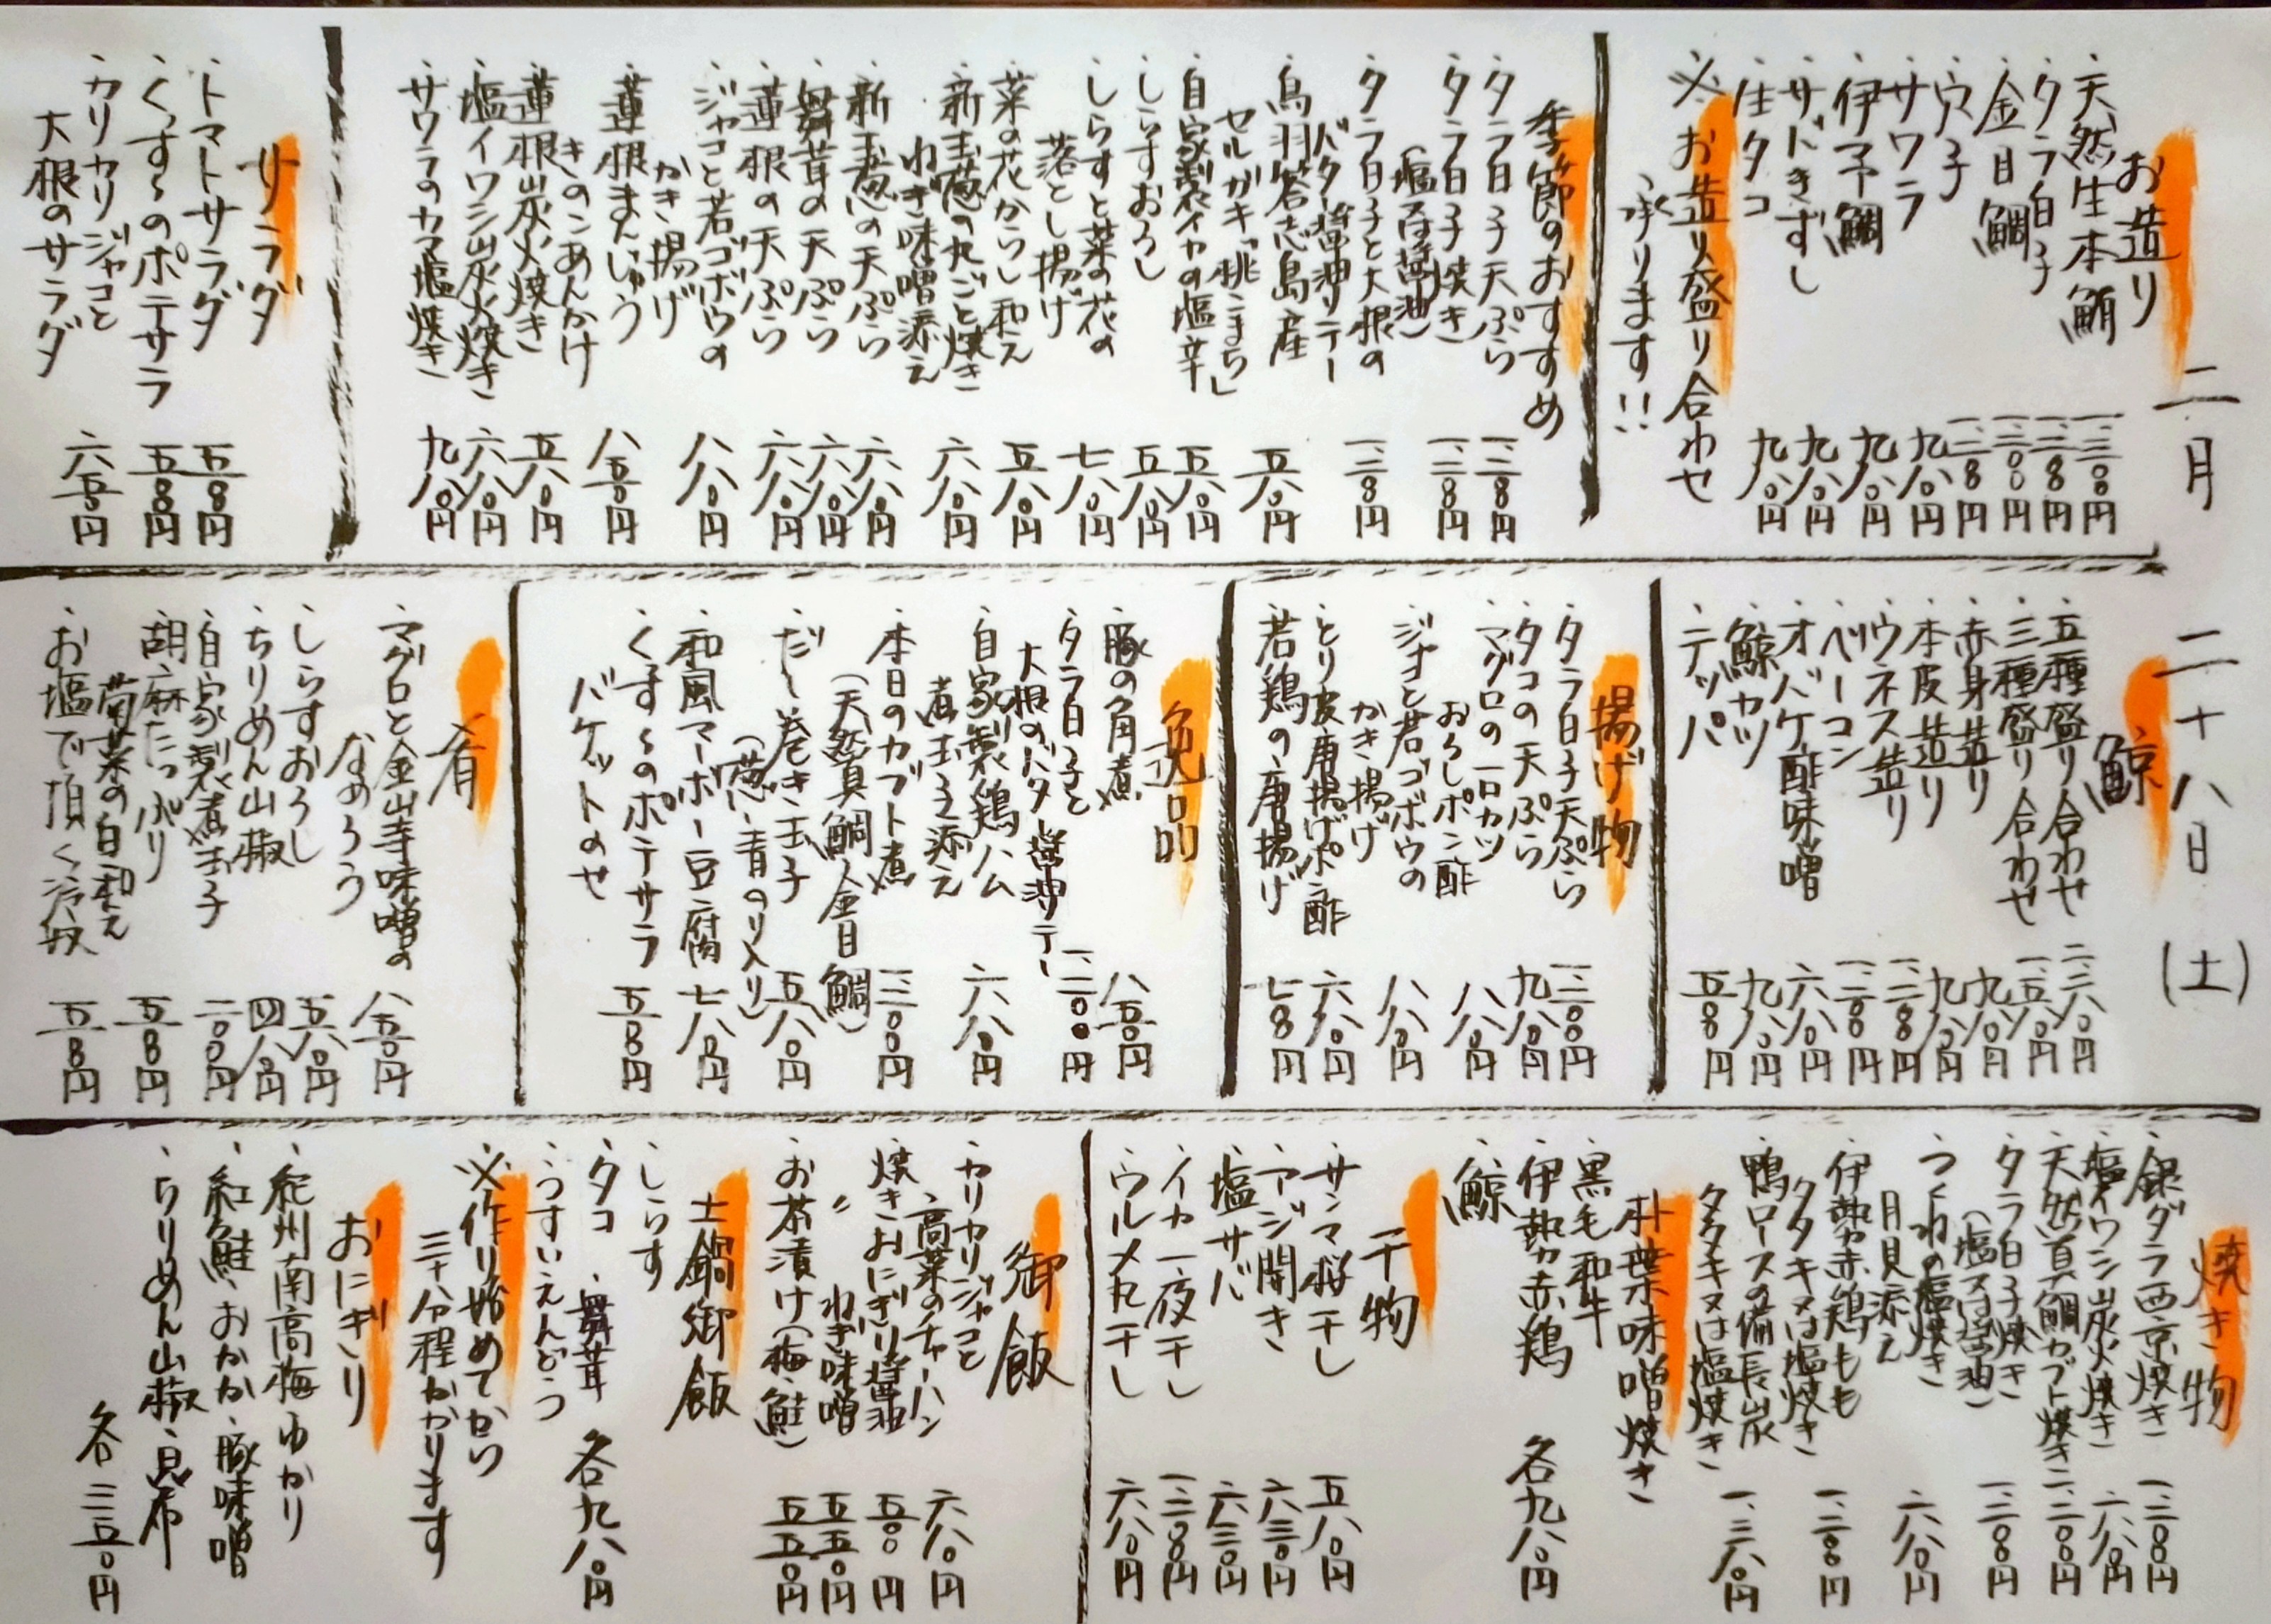 二月 二十八日 (土)
お造り
・天然生本鮪 一、三〇〇円
・タラ白子 一、二〇〇円
・金目鯛 一、三〇〇円
・穴子 一、二〇〇円
・サワラ 九八〇円
・伊予鯛 九八〇円
・サバきずし 九八〇円
・生タコ 九八〇円
※お造り盛り合わせ
承ります!!
季節のおすすめ
・タラ白子天ぷら 一、三〇〇円
・タラ白子焼き
(塩又は醤油) 一、三〇〇円
・タラ白子と大根の
バター醤油ソテー 一、三〇〇円
・鳥羽答志島産
セルガキ「桃こまち」 五八〇円
・自家製イカの塩辛 五八〇円
・しらすおろし 五八〇円
・しらすと菜の花の
落とし揚げ 七八〇円
・菜の花からし和え 五八〇円
・新玉葱の丸ごと焼き
ねぎ味噌添え 六八〇円
・新玉葱の天ぷら 六八〇円
・舞茸の天ぷら 六八〇円
・蓮根の天ぷら 六八〇円
・ジャコと若ゴボウの
かき揚げ 八八〇円
・蓮根まんじゅう
きのこあんかけ 八五〇円
・蓮根炭火焼き 五八〇円
・塩イワシ炭火焼き 六八〇円
・サワラのカマ塩焼き 九八〇円
サラダ
・トマトサラダ 五〇〇円
・くずしのポテサラ 五〇〇円
・カリカリジャコと
大根のサラダ 六五〇円
鯨
・五種盛り合わせ 二、六八〇円
・三種盛り合わせ 一、五八〇円
・赤身造り 九八〇円
・本皮造り 九八〇円
・ウネス造り 一、二〇〇円
・ベーコン 一、二〇〇円
・オバケ酢味噌 六八〇円
・鯨カツ 九八〇円
・テッパ 五〇〇円
揚げ物
・タラ白子天ぷら 一、三〇〇円
・タコの天ぷら 九八〇円
・マグロの一口カツ
おろしポン酢 八八〇円
・ジャコと若ゴボウの
かき揚げ 八八〇円
・とり皮唐揚げポン酢 六八〇円
・若鶏の唐揚げ 七〇〇円
逸品
・豚の角煮 八五〇円
・タラ白子と
大根のバター醤油ソテー 一、三〇〇円
・自家製鶏ハム
煮玉子添え 六八〇円
・本日のカブト煮
(天然真鯛、金目鯛) 一、三〇〇円
・だし巻き玉子
(葱、青のり入り) 五八〇円
・和風マーボー豆腐 七八〇円
・くずしのポテサラ
バケットのせ 五〇〇円
肴
・マグロと金山寺味噌の
なめろう 八五〇円
・しらすおろし 五八〇円
・ちりめん山椒 四八〇円
・自家製煮玉子 二〇〇円
・胡麻たっぷり
菊菜の白和え 五〇〇円
・お塩で頂く冷奴 五〇〇円
焼き物
・銀ダラ西京焼き 一、三〇〇円
・塩イワシ炭火焼き 六八〇円
・天然真鯛カブト焼き 一、三〇〇円
・タラ白子焼き
(塩又は醤油) 一、三〇〇円
・つくねの塩焼き
月見添え 六八〇円
・伊勢赤鶏もも
タタキ又は塩焼き 一、三〇〇円
・鴨ロースの備長炭
タタキ又は塩焼き 一、三八〇円
朴葉味噌焼き
・黒毛和牛
・伊勢赤鶏 各九八〇円
・鯨
干物
・サンマ桜干し 五八〇円
・アジ開き 六三〇円
・塩サバ 六三〇円
・イカ一夜干し 一、三〇〇円
・ウルメ丸干し 六八〇円
御飯
・カリカリジャコと
高菜のチャーハン 六八〇円
・焼きおにぎり醤油 五〇〇円
・〃 ねぎ味噌 五五〇円
・お茶漬け(梅、鮭) 五五〇円
土鍋御飯
・しらす
・タコ ・舞茸 各九八〇円
・うすいえんどう
※作り始めてから
三十分程かかります
おにぎり
・紀州南高梅、ゆかり
・紅鮭、おかか、豚味噌
・ちりめん山椒、昆布
各二五〇円